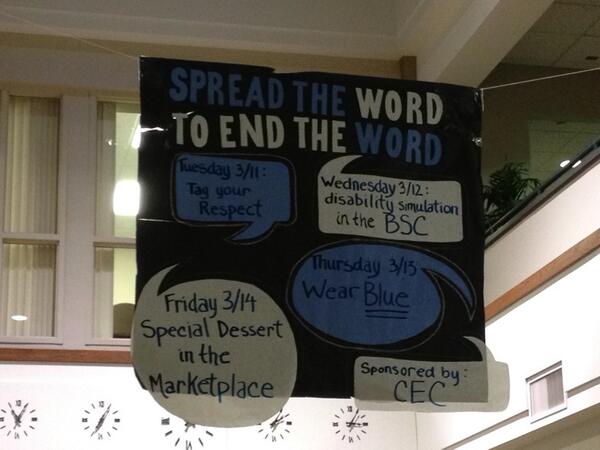 SPREAD THE WORD
TO END THE WORD
Tuesday 3/11:
Tag your
Respect
Wednesday 3/12:
disability simulation
in the BSC
Thursday 3/13
Wear Blue
Friday 3/14
Special Dessert
in the
Marketplace
Sponsored by:
CEC